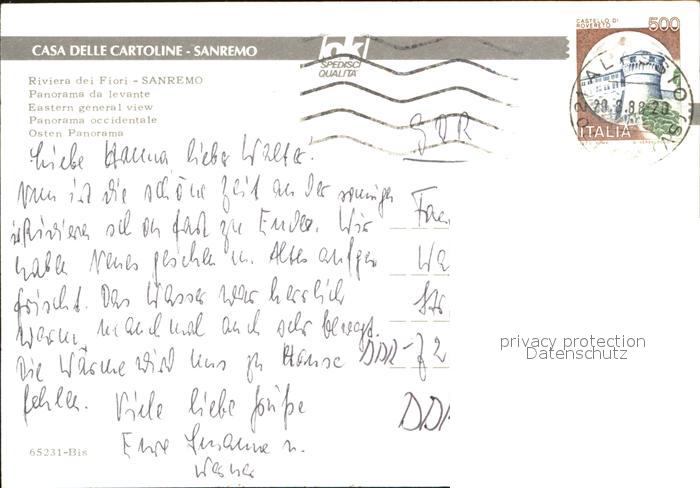 CASA DELLE CARTOLINE - SANREMO
ok
SPEDISCI
QUALITA'
CASTELLO DI
ROVERETO
500
ITALIA
Riviera dei Fiori - SANREMO
Panorama da levante
Eastern general view
Panorama occidentale
Osten Panorama
Liebe Hanna lieber Walter!
Nun ist die schöne Zeit an der sonnigen
Riviera schon fast zu Ende. Wir
haben Neues gesehen u. Altes aufge
frischt. Das Wasser war herrlich
warm, manchmal auch sehr bewegt.
Die Wärme wird uns zu Hause
fehlen. Viele liebe Grüße
Eure Susanne u.
Werner
GDR
Wa
Str
DDR-
DDR
65231-Bis
privacy protection
Datenschutz